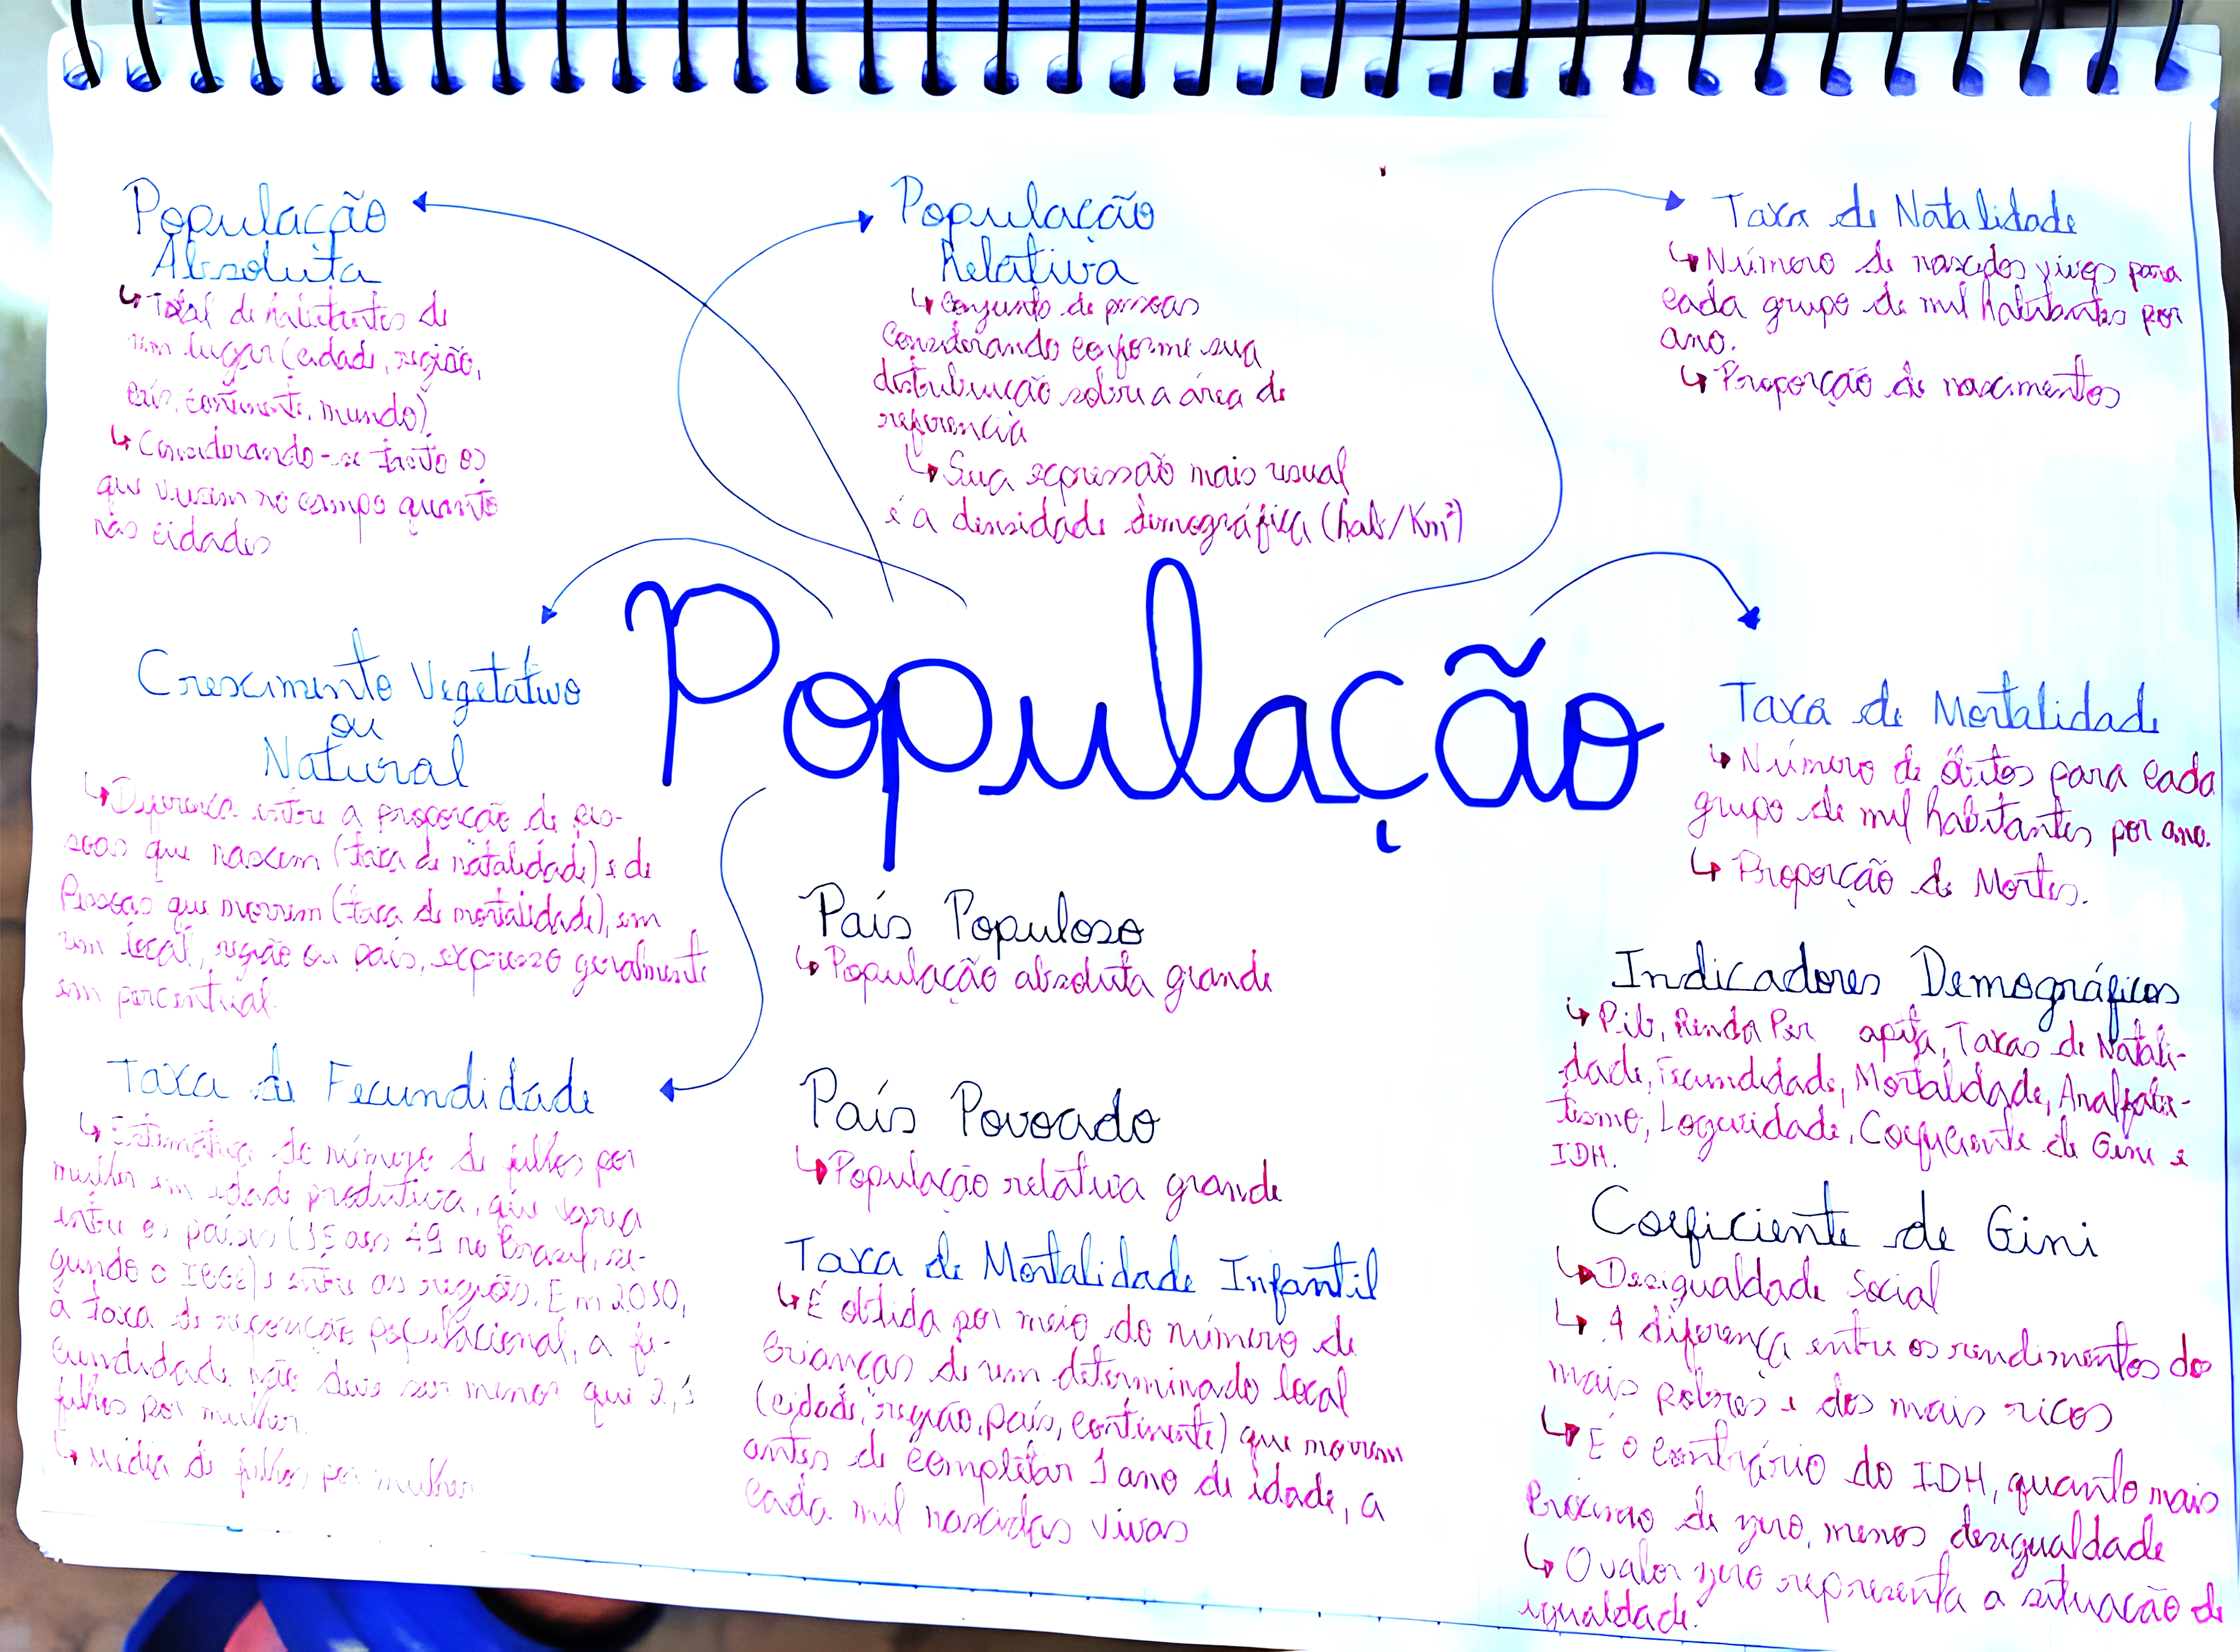 População
Absoluta
↳ Total de habitantes de
um lugar (cidade, região,
país, continente, mundo)
↳ Considerando-se tanto os
que vivem no campo quanto
nas cidades
População
Relativa
↳ Conjunto de pessoas
considerando conforme sua
distribuição sobre a área de
referencia
↳ Sua expressão mais usual
é a densidade demográfica (hab/Km²)
Taxa de Natalidade
↳ Número de nascidos vivos para
cada grupo de mil habitantes por
ano.
↳ Proporção de nascimentos
População
Crescimento Vegetativo
ou
Natural
↳ Diferença entre a proporção de pes-
soas que nascem (taxa de natalidade) e de
Pessoas que morrem (taxa de mortalidade), em
um local, região ou país, expresso geralmente
em porcentual.
Taxa de Mortalidade
↳ Número de óbitos para cada
grupo de mil habitantes por ano.
↳ Proporção de Mortes.
País Populoso
↳ População absoluta grande
País Povoado
↳ População relativa grande
Taxa de Fecundidade
↳ Estimativa do número de filhos por
mulher em idade produtiva, que varia
entre os países (15 aos 49 no Brasil, se-
gundo o IBGE) e entre as região. Em 2050,
a taxa de reposição populacional, a fe-
cundidade não deve ser menor que 2,1
filhos por mulher.
↳ Média de filhos por mulher
Taxa de Mortalidade Infantil
↳ É obtida por meio do número de
crianças de um determinado local
(cidade, região, país, continente) que morrem
antes de completar 1 ano de idade, a
cada mil nascidas vivas
Indicadores Demográficos
↳ Pib, Renda Per apita, Taxas de Natali-
dade, Fecundidade, Mortalidade, Analfabe-
tismo, Logevidade, Coeficiente de Gini e
IDH.
Coeficiente de Gini
↳ Desigualdade Social
↳ A diferença entre os rendimentos dos
mais pobres e dos mais ricos
↳ É o contrário do IDH, quanto mais
próximo de zero, menos desigualdade
↳ O valor zero representa a situação de
igualdade.